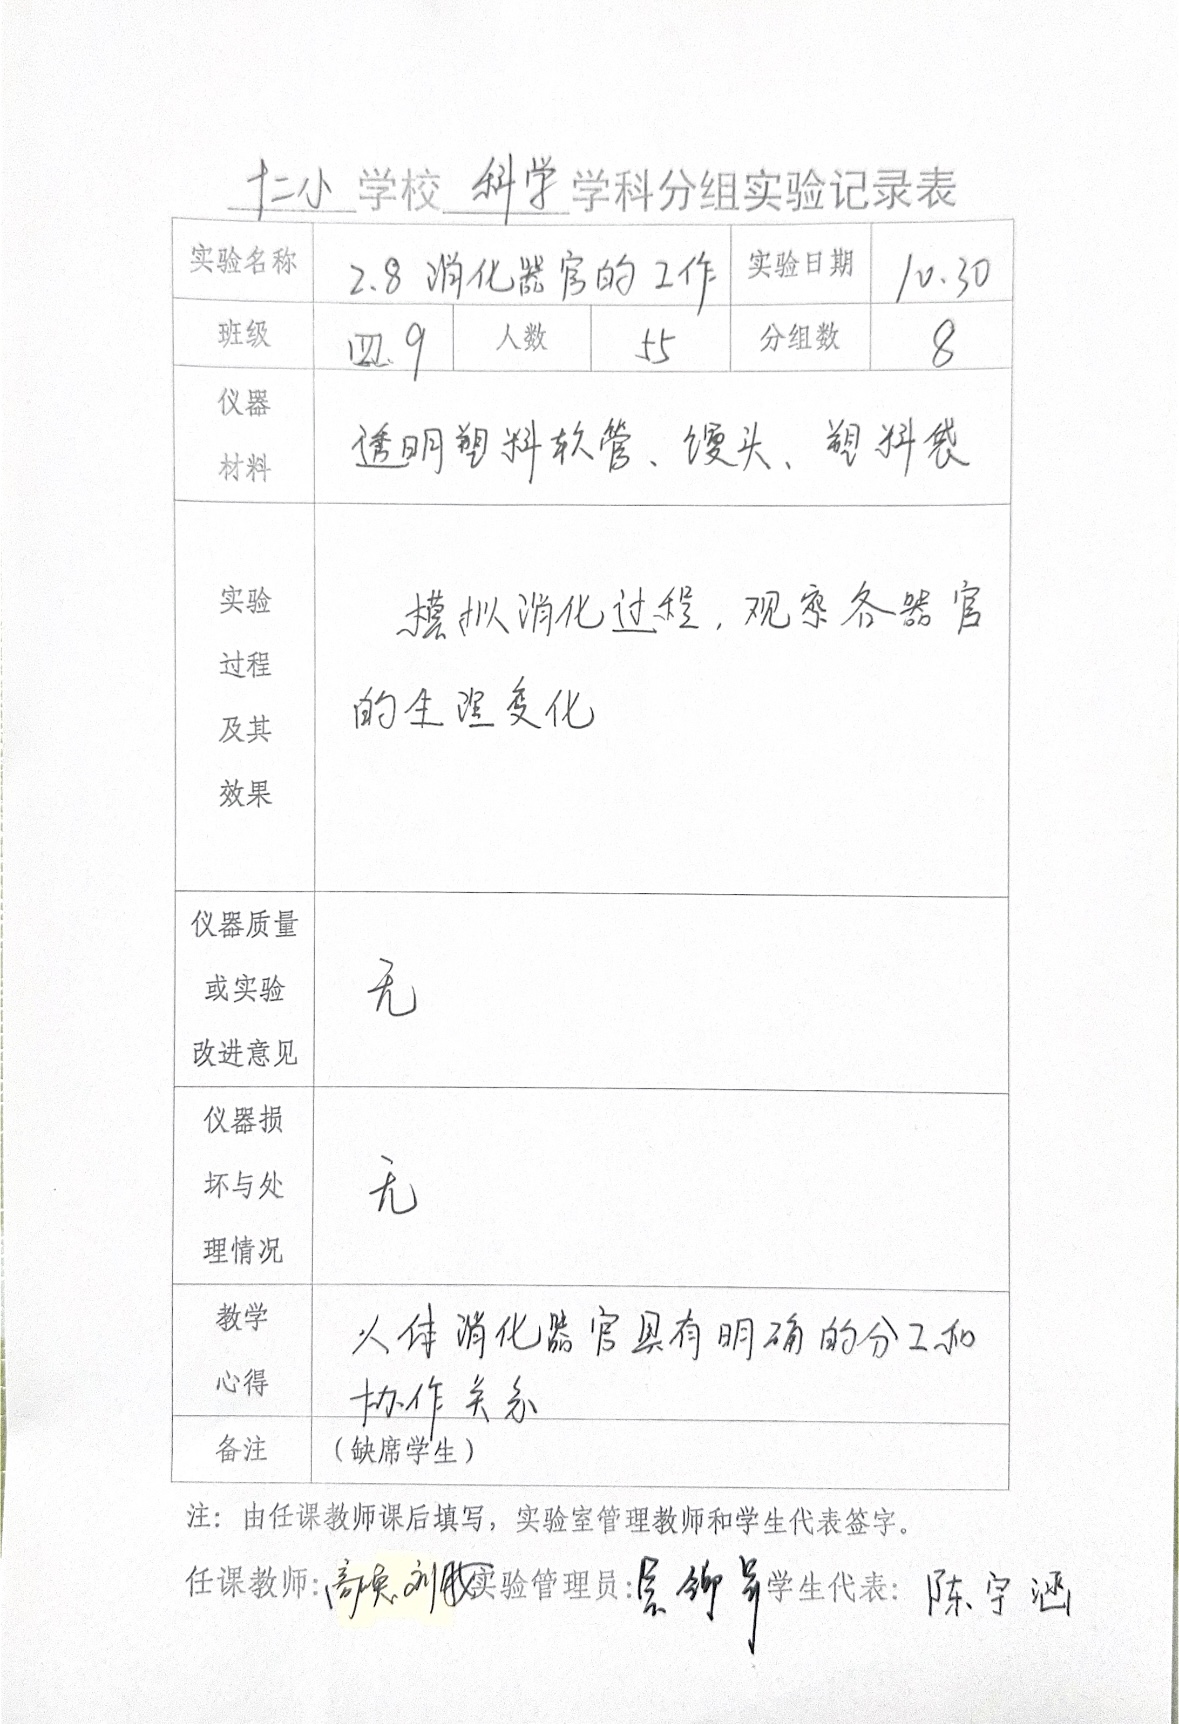 十二小学校科学学科分组实验记录表
实验名称 2.8 消化器官的工作 实验日期 10.30
班级 四.9 人数 55 分组数 8
仪器
材料
透明塑料软管、馒头、塑料袋
实验
过程
及其
效果
模拟消化过程，观察各器官
的生理变化
仪器质量
或实验
改进意见
无
仪器损
坏与处
理情况
无
教学
心得
人体消化器官具有明确的分工和
协作关系
备注 （缺席学生）
注：由任课教师课后填写，实验室管理教师和学生代表签字。
任课教师: 实验管理员: 学生代表: 陈宇涵